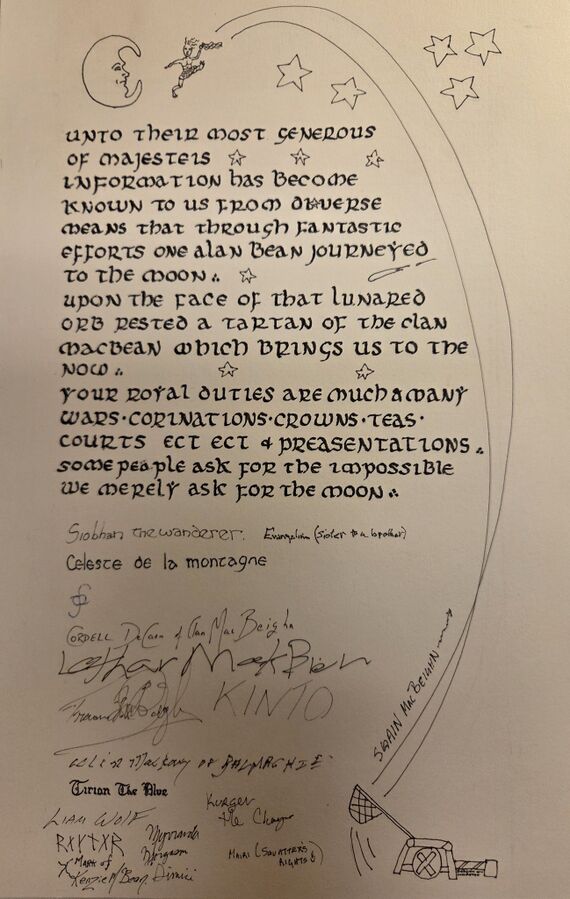 unto their most generous
of majesteis
information has become
known to us from diverse
means that through fantastic
efforts one alan bean journeyed
to the moon
upon the face of that lunared
orb rested a tartan of the clan
macbean which brings us to the
now
your royal duties are much & many
wars·corinations·crowns·teas·
courts ect ect & preasentations
some people ask for the impossible
we merely ask for the moon
Siobhan the wanderer. Evangelin (sister to a brother)
Celeste de la montagne
Cordell DeCean of Clan MacBeighn
Lothar MacBean
KINTO
SWAIN MacBEIGHN
Colin Mackay of BALMAGHIE
Tirion The Blue
LIAM WOLF
Kurger
the
Morgan
X Mark of
Kenzie M'Bean
MAIRI (SQUATTER'S
RIGHTS)